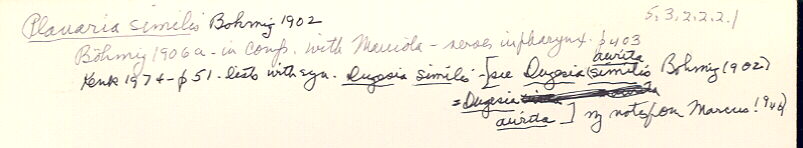 Planaria similis Bohmig 1902
5.3.2.2.2.1
Böhmig 1906a - in comp. with Maculata - nerves in pharynx. p 403
Kenk 1974 - p 51. lists with syn. Dugesia similis - [see Dugesia similis Bohmig 1902)
aurita
= Dugesia
aurita] my notes on Marcus 1946)